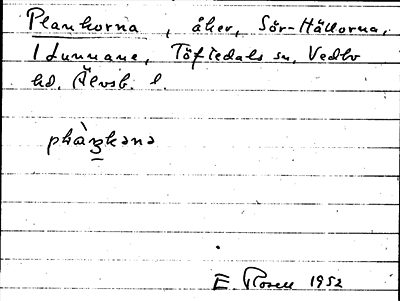 Plankorna, åker, Sör-Hällorna,
Hunnane, Töftedals sn, Vedbo
hd. Älvsb. l.
E Rosell 1952